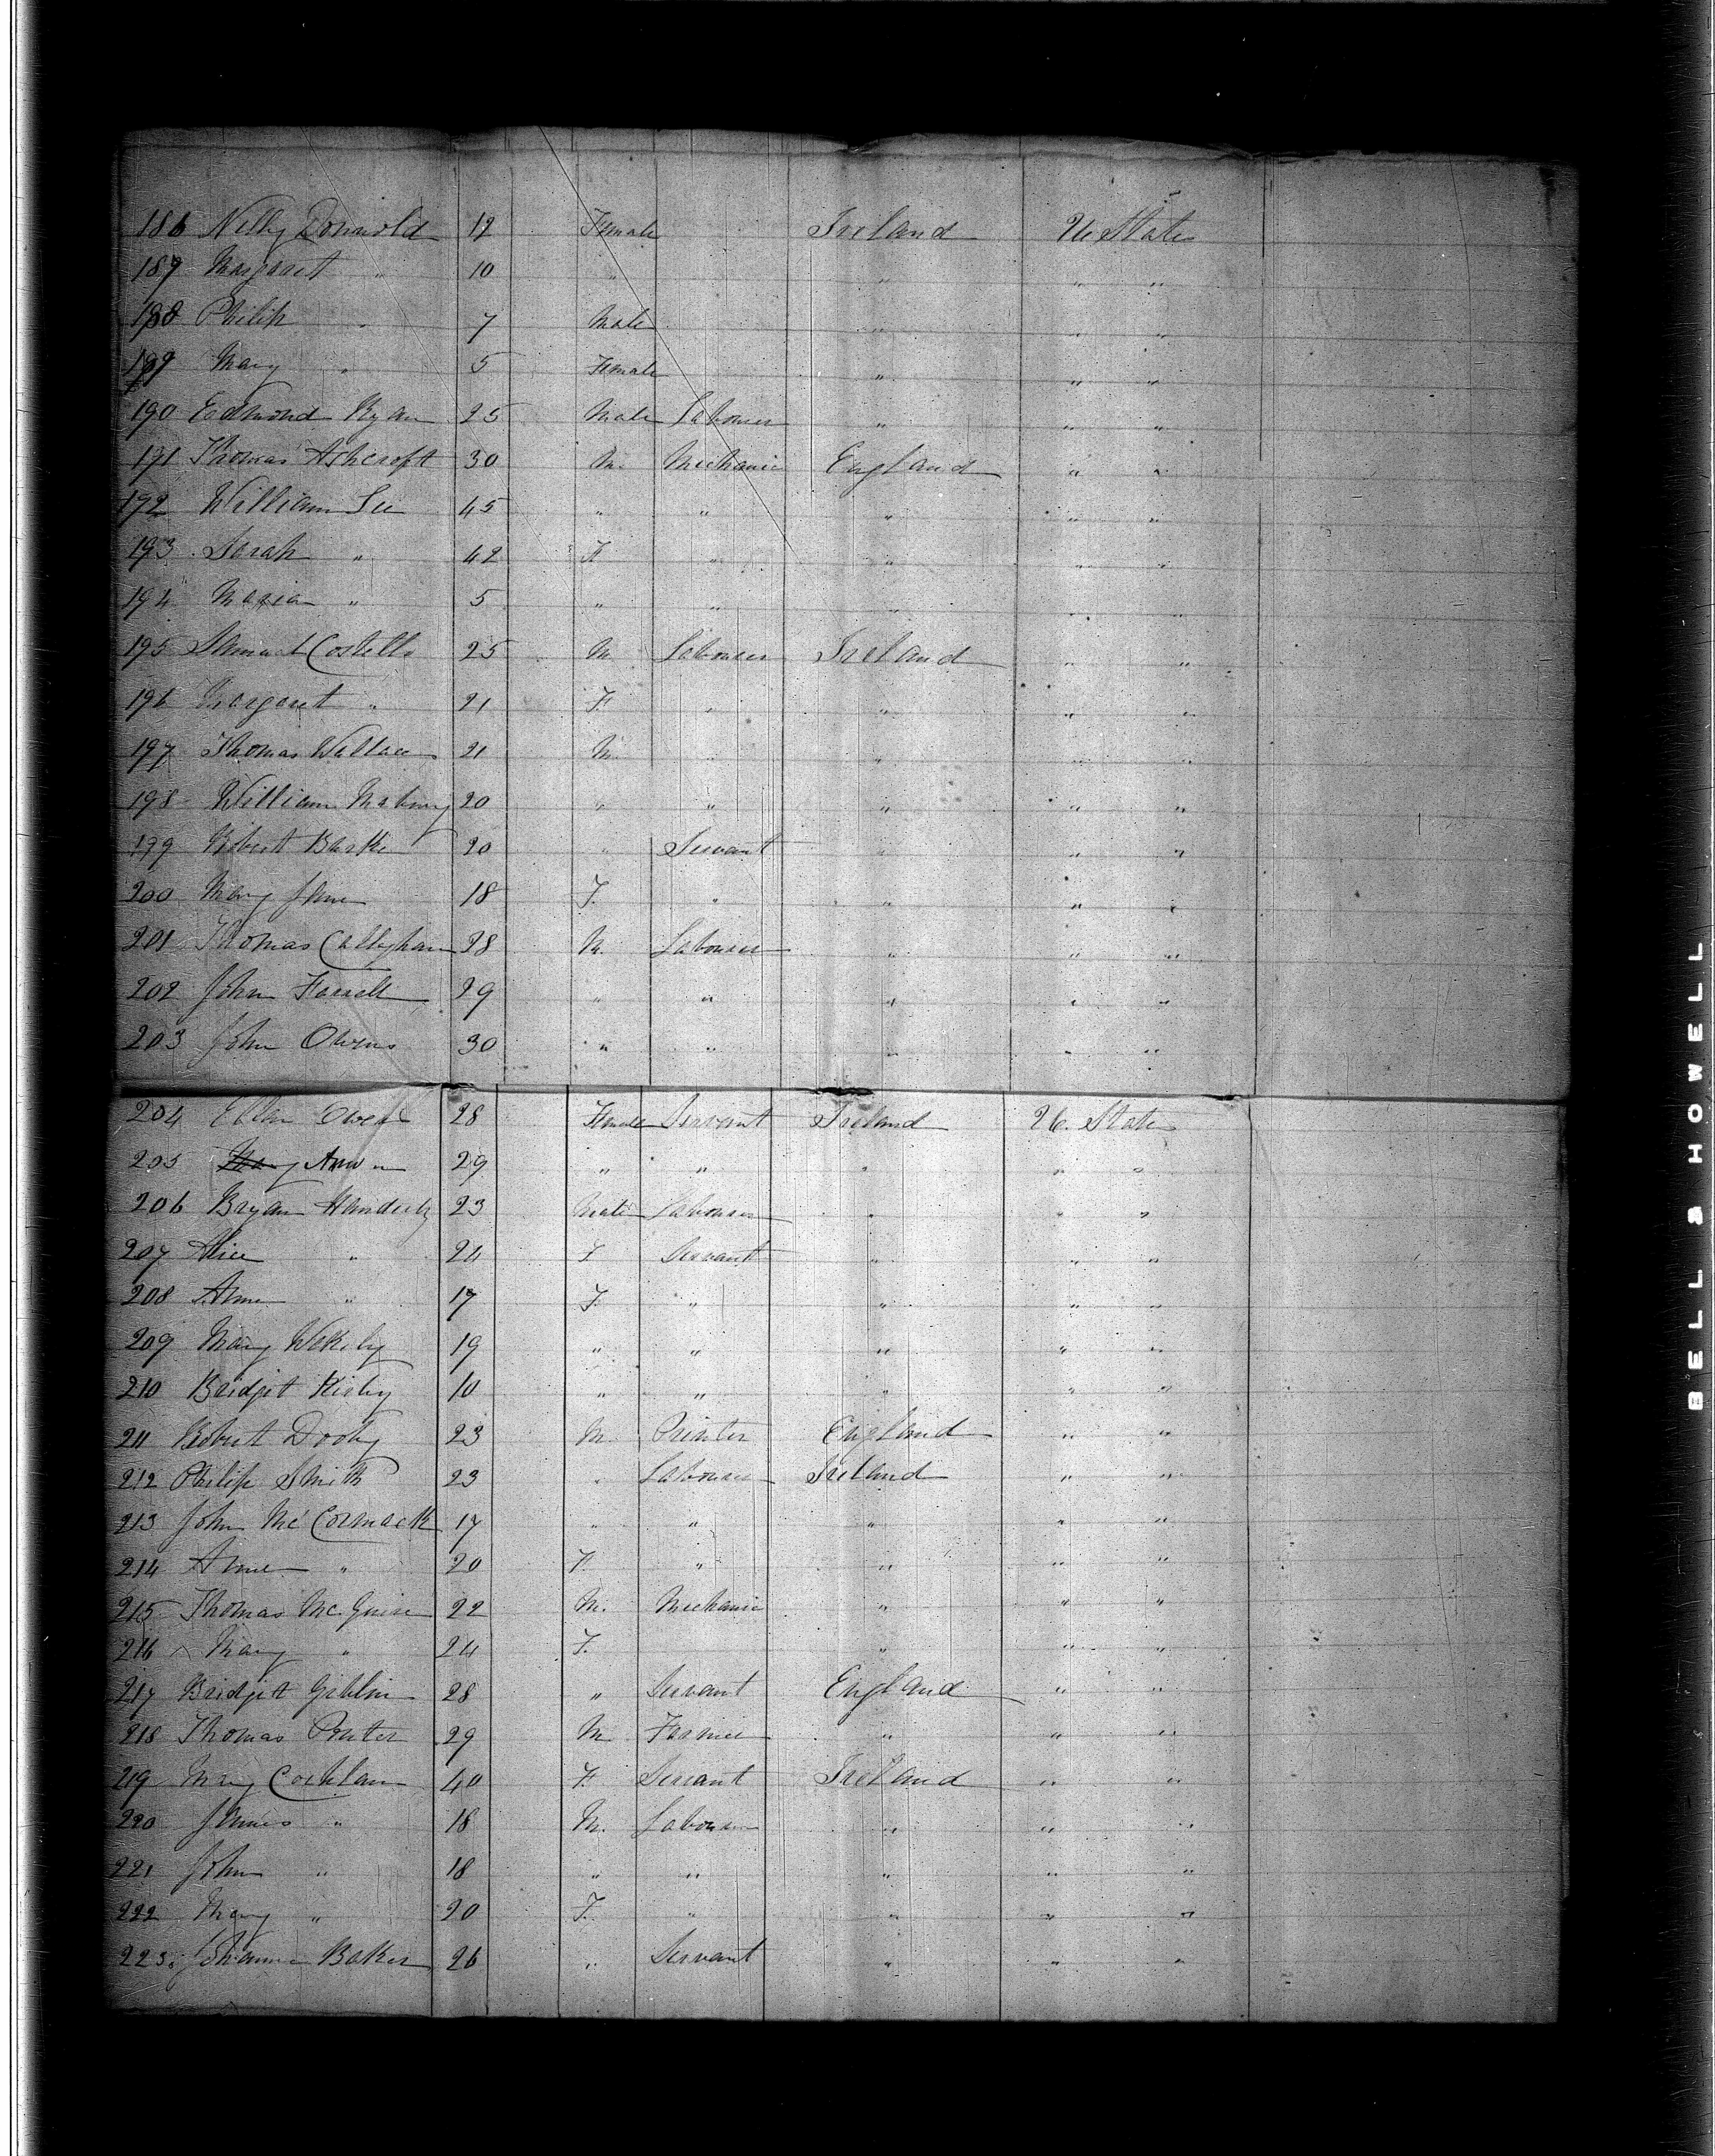 186 Nelly Donnold 12 Female Ireland U States
187 Margaret " 10 " " " "
188 Philip " 7 Male " " "
189 Mary " 5 Female " " "
190 Edmond Ryan 25 Male Labourer " " "
191 Thomas Ashcroft 30 M. Mechanic England " "
192 William Lee 45 " " " " "
193 Sarah " 42 F " " " "
194 Maria " 5 " " " " "
195 Costello 25 M Labourer Ireland " "
196 Margaret " 21 F " " " "
197 Thomas Wallace 21 M. " " " "
198 William Mahony 20 " " " " "
199 Robert Burke 20 " Servant " " "
200 Mary Jane 18 F. " " " "
201 Thomas Callaghan 28 M. Labourer " " "
202 John Farrell 29 " " " " "
203 John Owens 30 " " " " "
204 Ellen Owens 28 Female Servant Ireland U. States
205 Ann " 29 " " " " "
206 Bryan 23 Male Labourer " " "
207 Alice " 24 F Servant " " "
208 Anne " 17 F. " " " "
209 Mary 19 " " " " "
210 Bridget 10 " " " " "
211 Robert Dooly 23 M. Printer England " "
212 Philip Smith 23 " Labourer Ireland " "
213 John McCormack 17 " " " " "
214 Anne " 20 F. " " " "
215 Thomas McGuire 22 M. Mechanic " " "
216 Mary " 24 F. " " "
217 Bridget Giblin 28 " Servant England " "
218 Thomas 29 M Farmer " " "
219 Mary Coghlan 40 F Servant Ireland " "
220 James " 18 M. Labourer " " "
221 John " 18 " " " " "
222 Mary " 20 F. " " " "
223. Johanna Baker 26 " Servant " " "
BELL & HOWELL